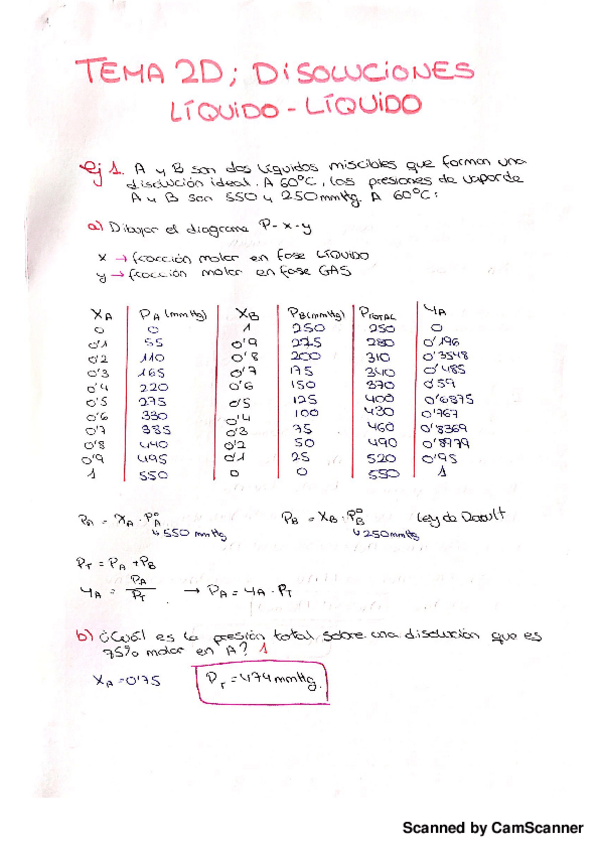 TEMA 2D; DISOLUCIONES
LÍQUIDO-LÍQUIDO
Ej 1. A y B son dos líquidos miscibles que forman una
disolución ideal. A 60°C, las presiones de vapor de
A y B son 550 y 250mmHg. A 60°C:
a) Dibujar el diagrama P-x-y
x → fracción molar en fase LÍQUIDO
y → fracción molar en fase GAS
XA PA(mmHg) XB PB(mmHg) PTOTAL YA
0 0 1 250 250 0
0'1 55 0'9 225 280 0'196
0'2 110 0'8 200 310 0'3548
0'3 165 0'7 175 340 0'485
0'4 220 0'6 150 370 0'59
0'5 275 0'5 125 400 0'6875
0'6 330 0'4 100 430 0'767
0'7 385 0'3 75 460 0'8369
0'8 440 0'2 50 490 0'8979
0'9 495 0'1 25 520 0'95
1 550 0 0 550 1
PA = XA · P°A PB = XB · P°B Ley de Raoult
↳ 550 mmHg ↳ 250mmHg
PT = PA + PB
YA = PA/PT → PA = YA · PT
b) ¿Cuál es la presión total sobre una disolución que es
75% molar en A? 1
XA = 0'75 PT = 474mmHg.
Scanned by CamScanner